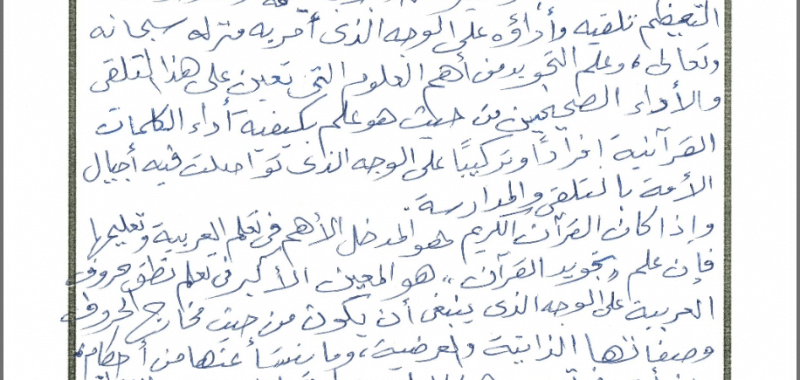 التعظيم تلقيه وأداؤه على الوجه الذى أمر به منزله سبحانه
وتعالى، وعلم التجويد من أهم العلوم التى تعين على هذا المتلقى
والأداء الصحيحين من حيث هو علم بكيفية أداء الكلمات
القرآنية إفرادًا وتركيبًا على الوجه الذى تواصلت فيه أجيال
الأمة بالتلقى والمدارسة.
وإذا كان القرآن الكريم هو المدخل الأهم فى تعلم العربية وتعليمها
فإن علم "تجويد القرآن" هو المعين الأكبر فى تعلم نطق حروف
العربية على الوجه الذى ينبغى أن يكون من حيث مخارج الحروف
وصفاتها الذاتية والعرضية، وما ينشأ عنها من أحكام،